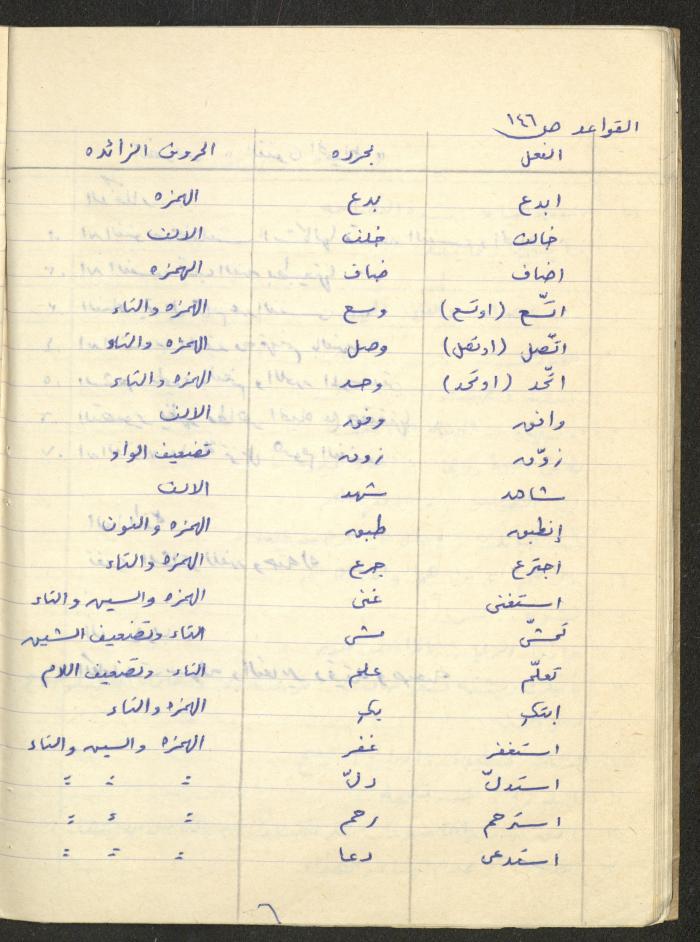 القواعد ص ١٤٦
الفعل مجرده الحروف الزائده
ابدع بدع الهمزه
خالف خلف الالف
اضاف ضاف الهمزه
اتّسع (اوتسع) وسع الهمزه والتاء
اتّصل (اوتصل) وصل الهمزه والتاء
اتّحد (اوتحد) وحد الهمزه والتاء
وافق وفق الالف
زوّق زوق تضعيف الواو
شاهد شهد الالف
إنطبق طبق الهمزه والنون
اجترع جرع الهمزه والتاء
استغنى غنى الهمزه والسين والتاء
تمشّى مشى التاء وتضعيف الشين
تعلّم علم التاء وتضعيف اللام
الهمزه والتاء
استغفر غفر الهمزه والسين والتاء
استدلّ دلّ : : :
استرحم رحم : : :
استدعى دعا : : :
٦